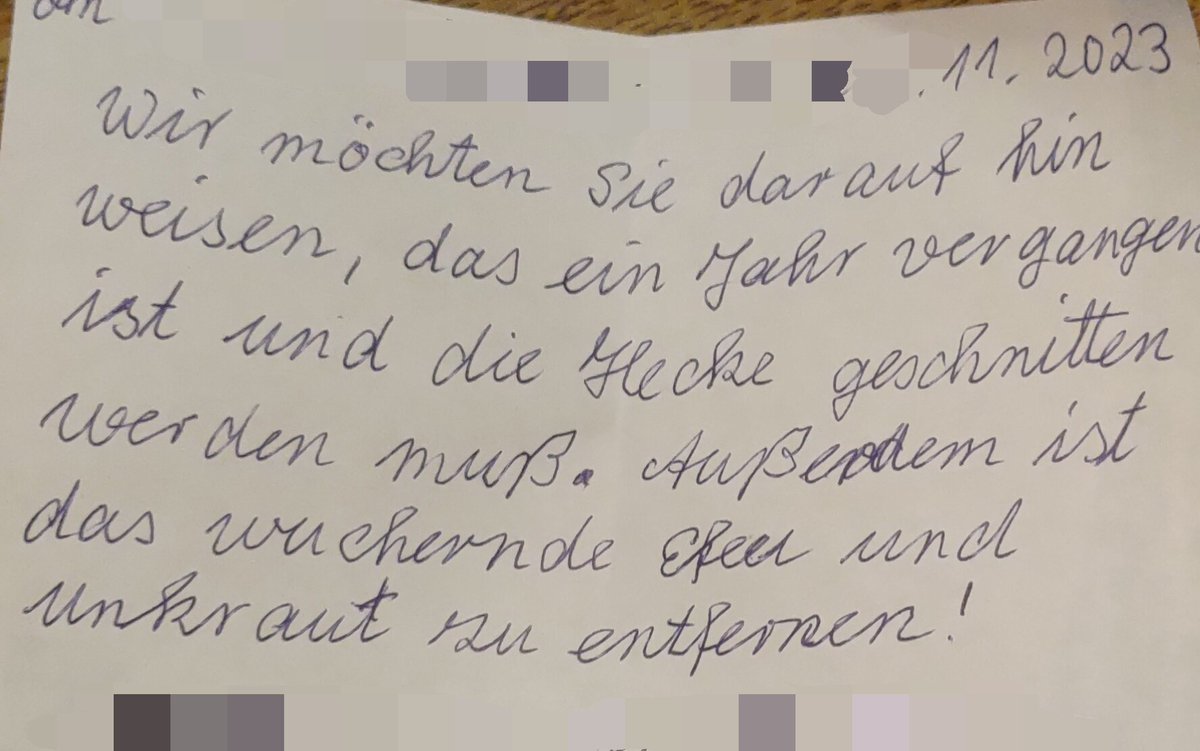 am
.11.2023
Wir möchten Sie darauf hin
weisen, das ein Jahr vergangen
ist und die Hecke geschnitten
werden muß. Außerdem ist
das wuchernde Efeu und
unkraut zu entfernen!